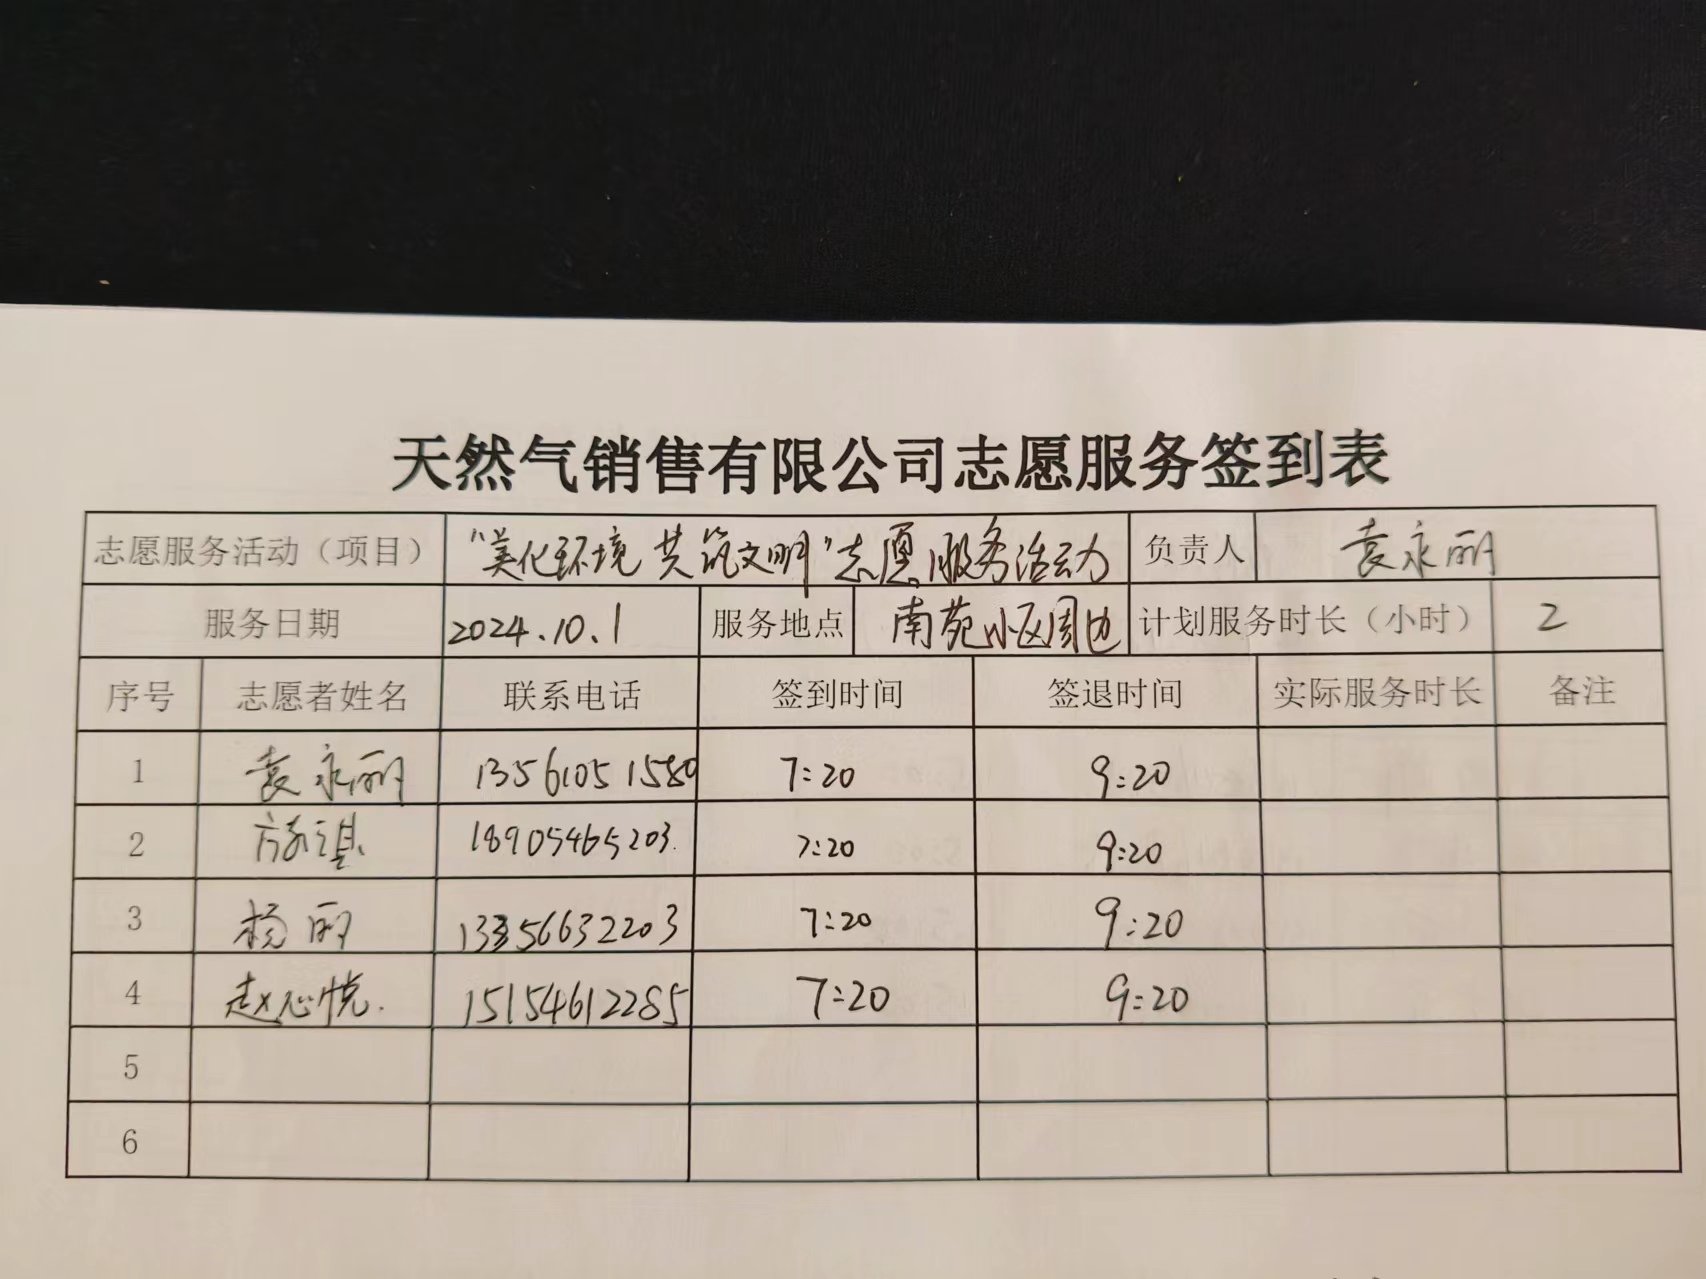 天然气销售有限公司志愿服务签到表
志愿服务活动（项目） "美化环境 共筑文明"志愿服务活动 负责人 袁永丽
服务日期 2024.10.1 服务地点 南苑小区周边 计划服务时长（小时） 2
序号 志愿者姓名 联系电话 签到时间 签退时间 实际服务时长 备注
1 袁永丽 13561051580 7:20 9:20
2 18905465203. 7:20 9:20
3 杨丽 13356632203 7:20 9:20
4 赵心悦. 15154612285 7:20 9:20
5
6